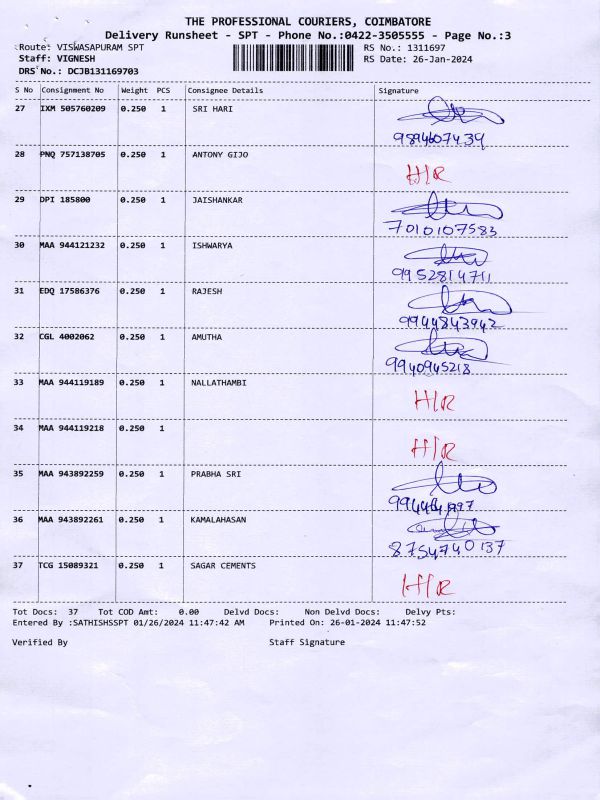 THE PROFESSIONAL COURIERS, COIMBATORE
Delivery Runsheet - SPT - Phone No.:0422-3505555 - Page No.:3
Route: VISWASAPURAM SPT RS No.: 1311697
Staff: VIGNESH RS Date: 26-Jan-2024
DRS No.: DCJB131169703
S No Consignment No Weight PCS Consignee Details Signature
27 IXM 505760209 0.250 1 SRI HARI
9894607439
28 PNQ 757138705 0.250 1 ANTONY GIJO
H/R
29 DPI 185800 0.250 1 JAISHANKAR
7010107583
30 MAA 944121232 0.250 1 ISHWARYA
9952814711
31 EDQ 17586376 0.250 1 RAJESH
9944843942
32 CGL 4002062 0.250 1 AMUTHA
9940945218
33 MAA 944119189 0.250 1 NALLATHAMBI
H/R
34 MAA 944119218 0.250 1
H/R
35 MAA 943892259 0.250 1 PRABHA SRI
36 MAA 943892261 0.250 1 KAMALAHASAN
8754740137
37 TCG 15089321 0.250 1 SAGAR CEMENTS
H/R
Tot Docs: 37 Tot COD Amt: 0.00 Delvd Docs: Non Delvd Docs: Delvy Pts:
Entered By :SATHISHSSPT 01/26/2024 11:47:42 AM Printed On: 26-01-2024 11:47:52
Verified By Staff Signature